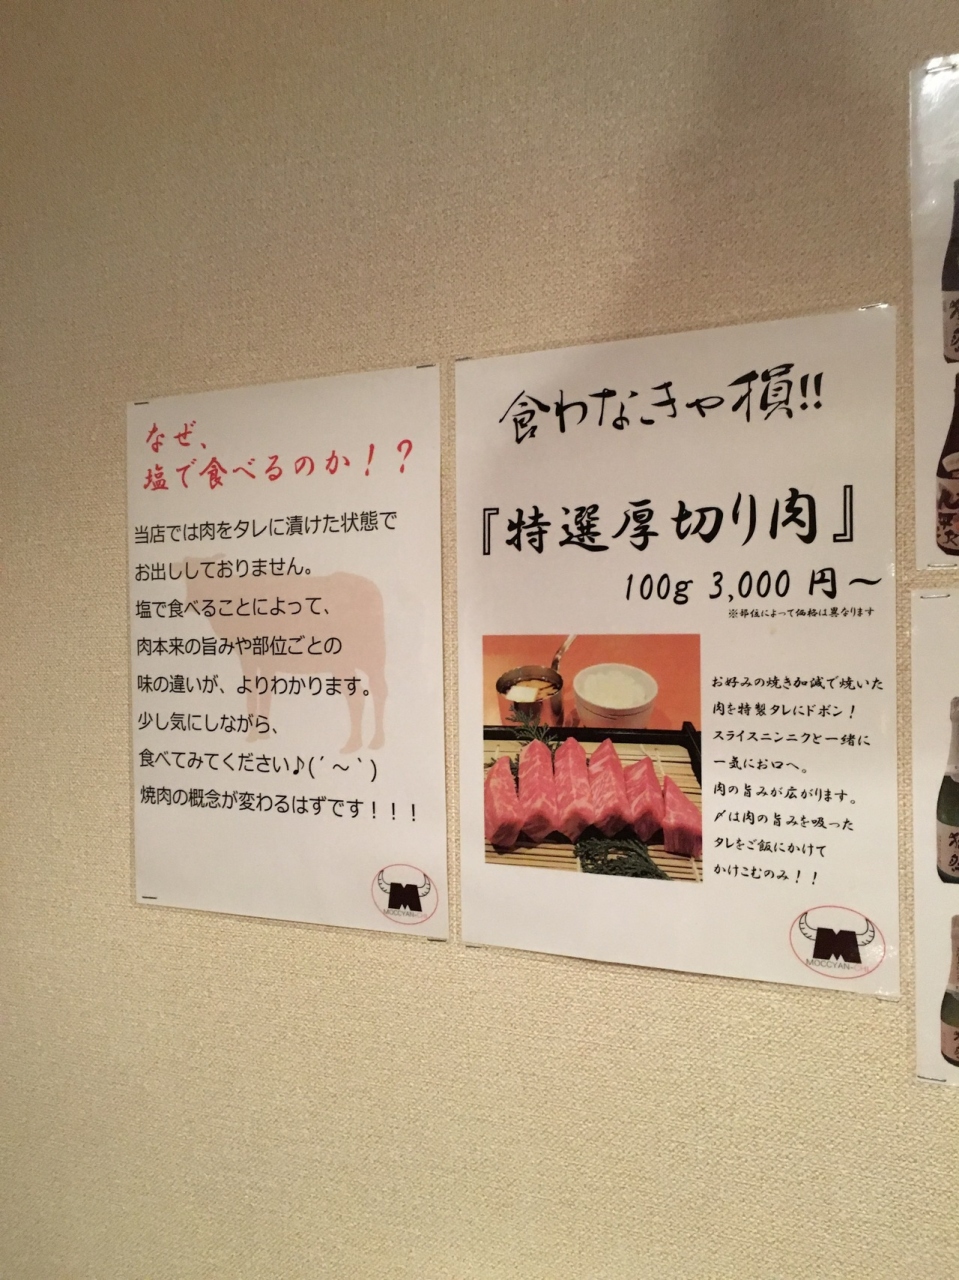 なぜ、
塩で食べるのか！？
当店では肉をタレに漬けた状態で
お出ししておりません。
塩で食べることによって、
肉本来の旨みや部位ごとの
味の違いが、よりわかります。
少し気にしながら、
食べてみてください♪(´～｀)
焼肉の概念が変わるはずです！！！
MOCCYAN-CHI
食わなきゃ損!!
『特選厚切り肉』
100g 3,000 円～
※部位によって価格は異なります
お好みの焼き加減で焼いた
肉を特製タレにドボン！
スライスニンニクと一緒に
一気にお口へ。
肉の旨みが広がります。
〆は肉の旨みを吸った
タレをご飯にかけて
かけこむのみ！！
MOCCYAN-CHI